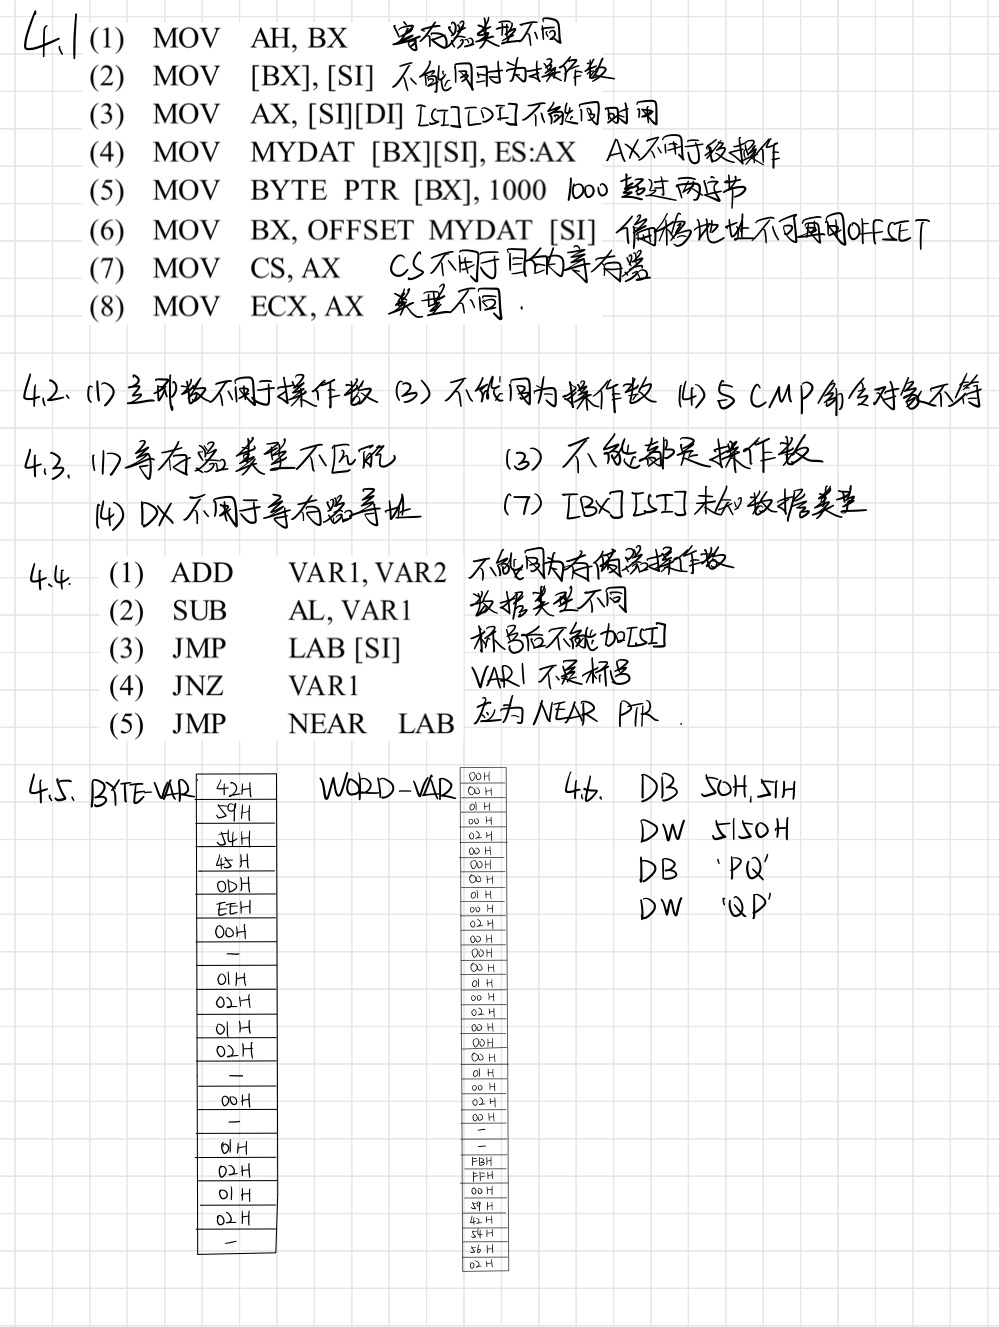 4.1 (1) MOV AH, BX 寄存器类型不同
(2) MOV [BX], [SI] 不能同时为操作数
(3) MOV AX, [SI][DI] [SI][DI]不能同时用
(4) MOV MYDAT [BX][SI], ES:AX AX不用于段操作
(5) MOV BYTE PTR [BX], 1000 1000 超过两字节
(6) MOV BX, OFFSET MYDAT [SI] 偏移地址不可再用OFFSET
(7) MOV CS, AX CS不用于目的寄存器
(8) MOV ECX, AX 类型不同.
4.2. (1) 立即数不用于操作数 (3) 不能同为操作数 (4) 与CMP命令对象不符
4.3. (1) 寄存器类型不匹配 (3) 不能都是操作数
(4) DX不用于寄存器寻址 (7) [BX][SI]未知数据类型
4.4. (1) ADD VAR1, VAR2 不能同为存储器操作数
(2) SUB AL, VAR1 数据类型不同
(3) JMP LAB [SI] 标号后不能加[SI]
(4) JNZ VAR1 VAR1 不是标号
(5) JMP NEAR LAB 应为 NEAR PTR.
4.5. BYTE-VAR
42H
59H
54H
45H
0DH
EEH
00H
—
01H
02H
01H
02H
—
00H
—
01H
02H
01H
02H
—
WORD-VAR
00H
00H
01H
00H
02H
00H
00H
00H
01H
00H
02H
00H
00H
00H
01H
00H
02H
00H
00H
00H
01H
00H
02H
00H
—
—
FBH
FFH
00H
59H
42H
54H
56H
02H
4.6. DB 50H, 51H
DW 5150H
DB 'PQ'
DW 'QP'